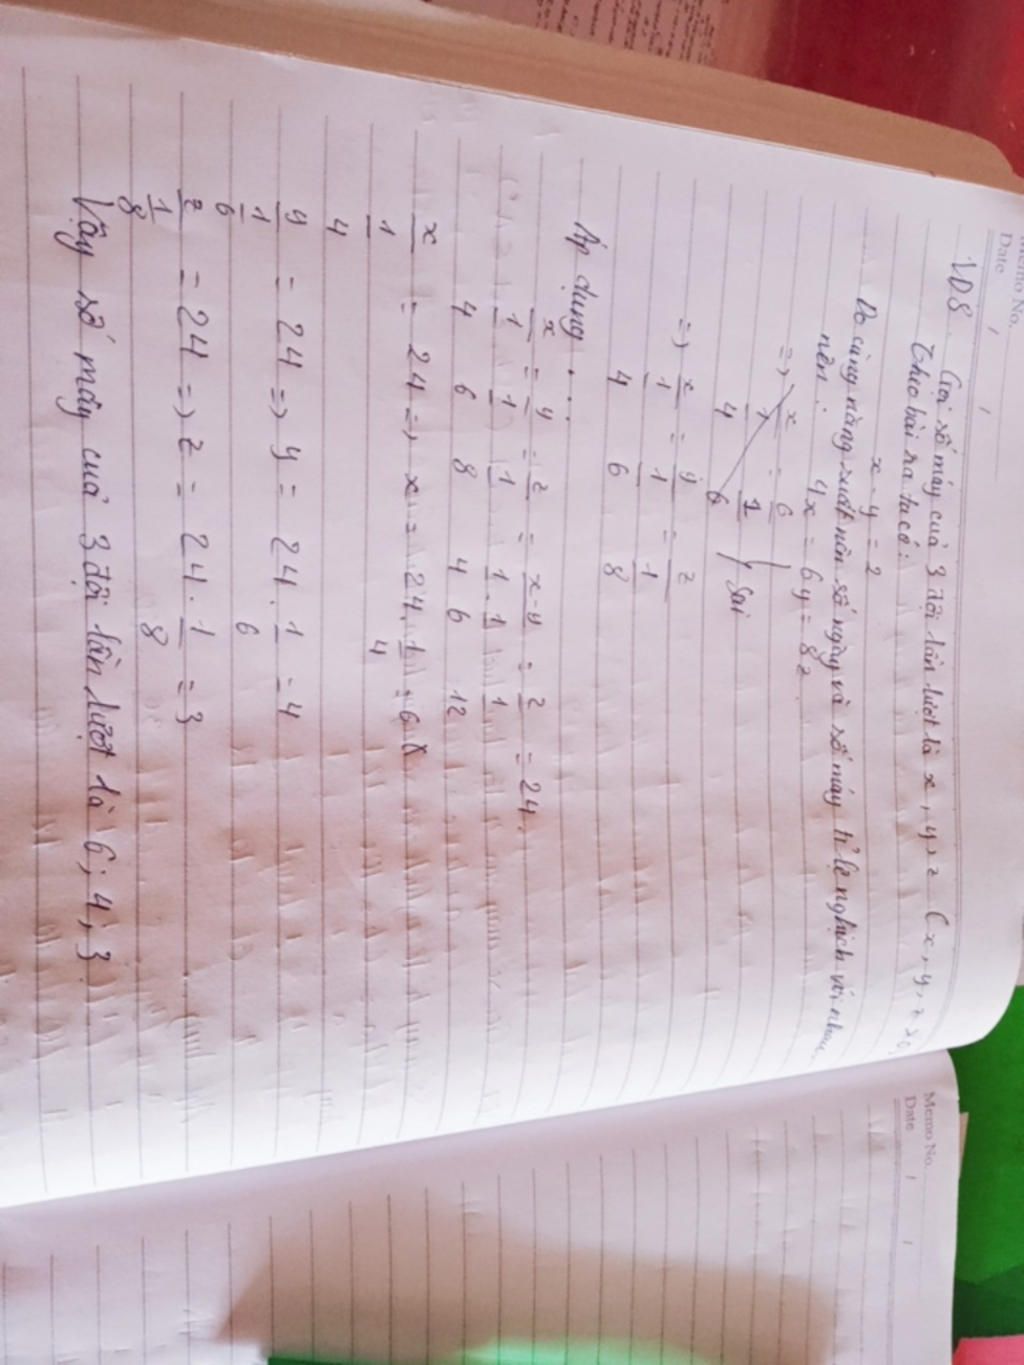 Memo No.
Date / /
VD8. Gọi số máy của 3 đội lần lượt là x, y, z (x, y, z > 0)
Theo bài ra ta có:
x - y = 2
Do cùng năng suất nên số ngày và số máy tỉ lệ nghịch với nhau
nên: 4x = 6y = 8z
=> x/(1/4) = 6/(1/6) } Sai
=> x/(1/4) = y/(1/6) = z/(1/8)
Áp dụng ...
x/(1/4) = y/(1/6) = z/(1/8) = (x-y)/(1/4 - 1/6) = 2/(1/12) = 24.
x/(1/4) = 24 => x = 24 . 1/4 = 6
y/(1/6) = 24 => y = 24 . 1/6 = 4
z/(1/8) = 24 => z = 24 . 1/8 = 3
Vậy số máy của 3 đội lần lượt là 6; 4; 3
Memo No.
Date / /